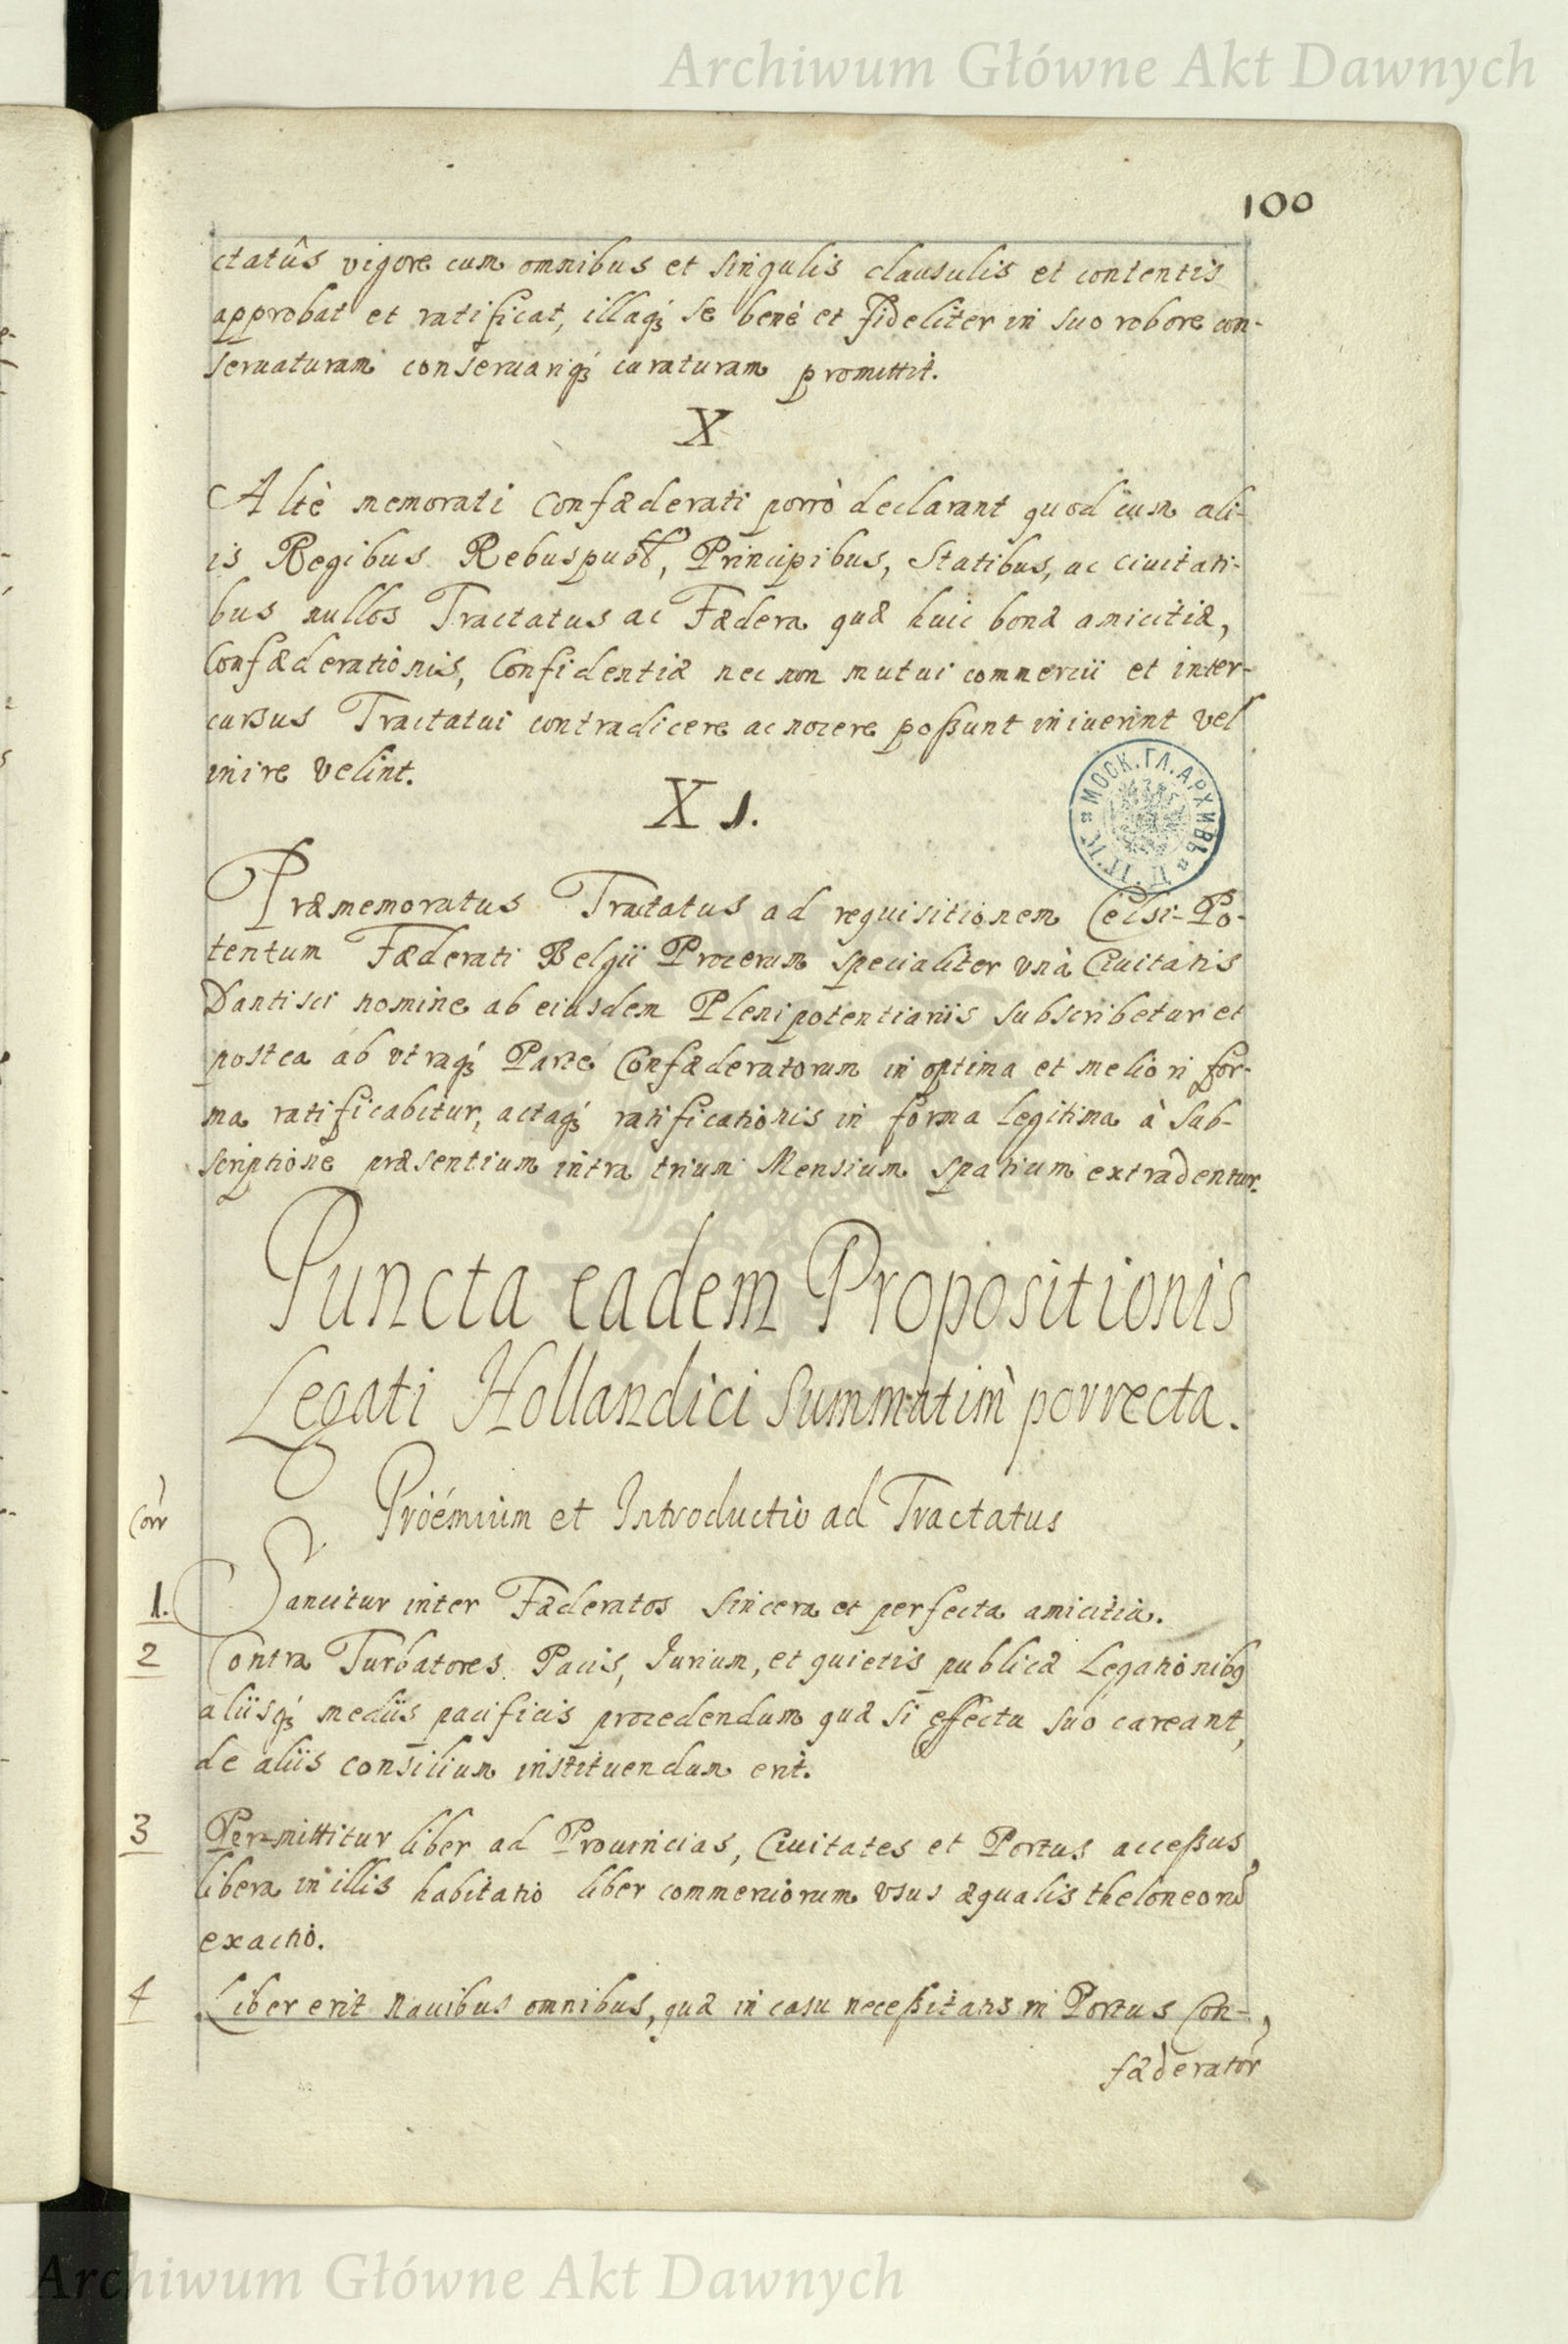 Archiwum Główne Akt Dawnych
100
ctatûs vigore cum omnibus et singulis clausulis et contentis
approbat et ratificat, illaq; se benè et fideliter in suo robore con-
seruaturam conseruariq; curaturam promittit.
X
Altè memorati Confæderati porrò declarant quod cum ali-
is Regibus Rebuspubl, Principibus, Statibus, ac Ciuitati-
bus nullos Tractatus ac Fædera quæ huic bonæ amicitiæ,
Confæderationis, Confidentiæ nec non mutui commercii et inter-
cursus Tractatui contradicere ac nocere poßunt iniuerint vel
inire velint.
МОСК. ГЛ. АРХИВЪ
XI.
Præmemoratus Tractatus ad requisitionem Celsi-Po-
tentum Fæderati Belgii Procerum specialiter vnà Ciuitatis
Dantisci nomine ab eiusdem Plenipotentiariis subscribetur et
postea ab vtraq; Parte Confæderatorum in optima et meliori for-
ma ratificabitur, actaq; ratificationis in forma legitima à sub-
scriptione præsentium intra trium Mensium spatium extradentur.
Puncta eadem Propositionis
Legati Hollandici summatim porrecta.
Proémium et Introductio ad Tractatus
Corr
1. Sancitur inter Fæderatos sincera et perfecta amicitia.
2 Contra Turbatores Pacis, Iurium, et quietis publicæ Legationibq
aliisq; mediis pacificis procedendum quæ si effectu suo careant,
de aliis consilium instituendum erit.
3 Permittitur liber ad Prouincias, Ciuitates et Portus acceßus,
libera in illis habitatio liber commerciorum vsus æqualis theloneorū
exactio.
4 Liber erit nauibus omnibus, quæ in casu neceßitatis in Portus Con-,
fæderator
Archiwum Główne Akt Dawnych